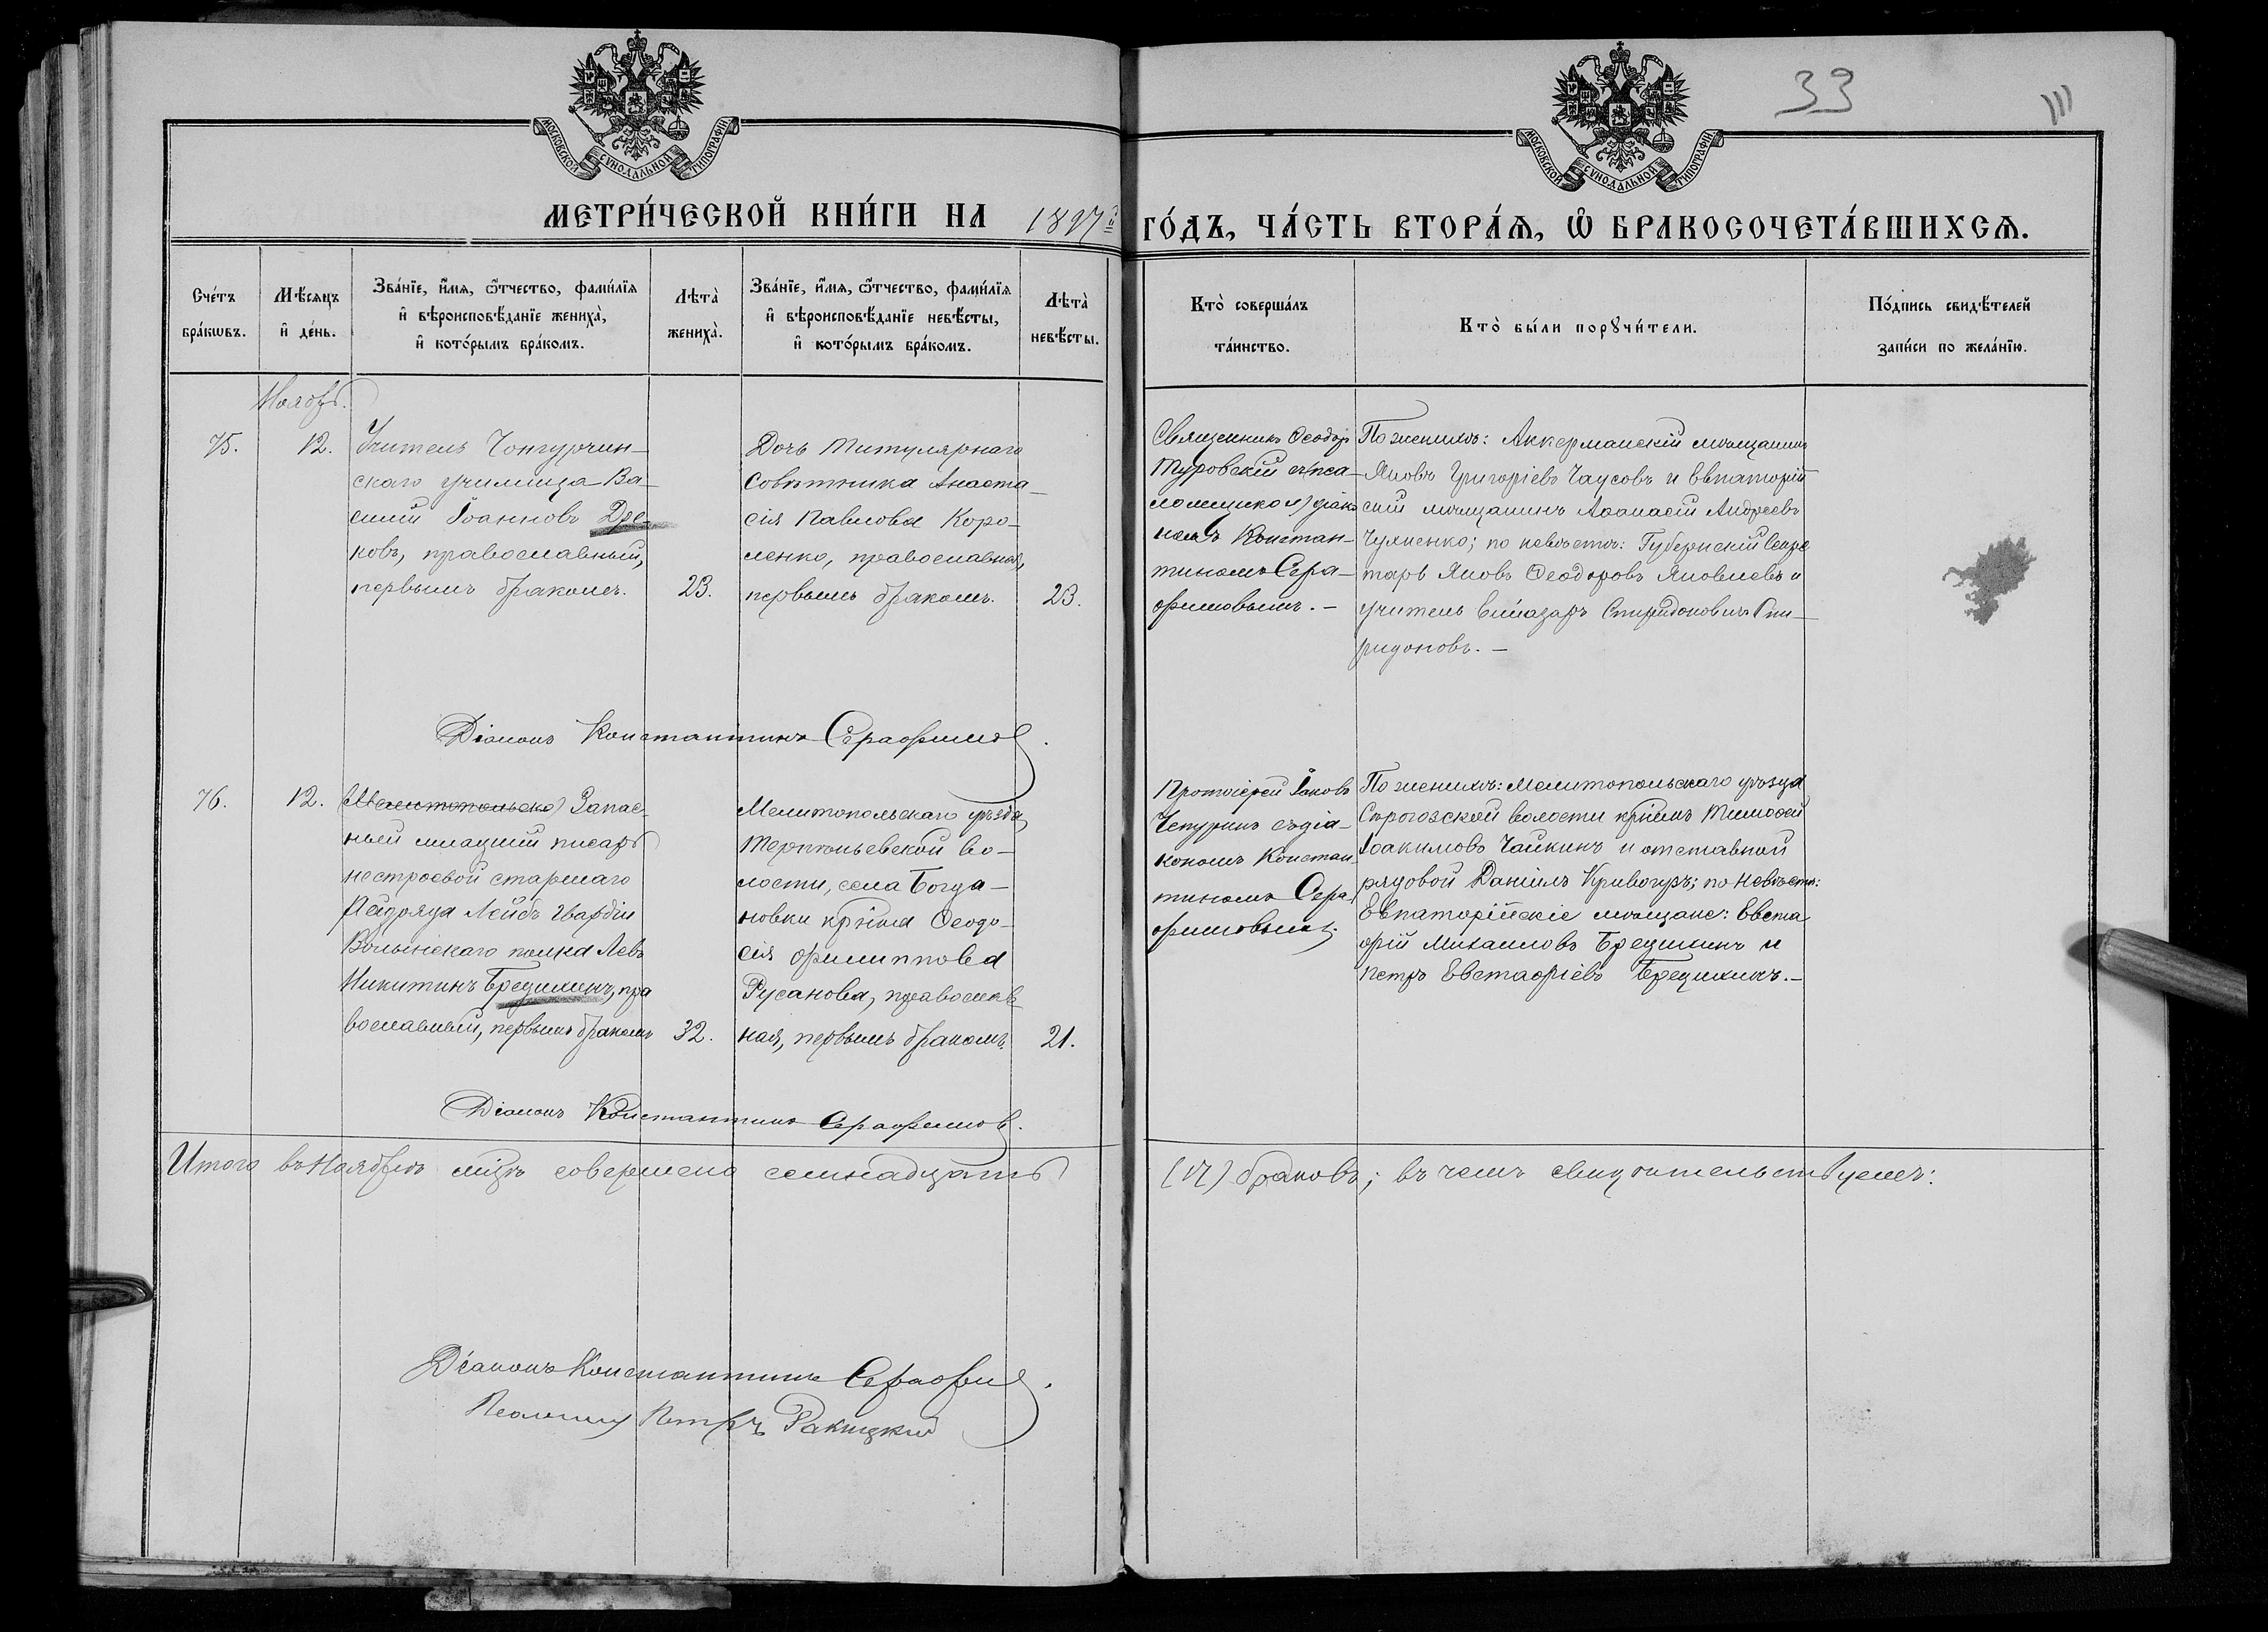 МОСКОВСКОЙ СѴНОДАЛЬНОЙ ТИПОГРАФІИ
МОСКОВСКОЙ СѴНОДАЛЬНОЙ ТИПОГРАФІИ
33
МЕТРИ́ЧЕСКОЙ КНИ́ГИ НА 1897й ГО́ДЪ, ЧА́СТЬ ВТОРА́Ѧ, Ѽ БРАКОСОЧЕТА́ВШИХСѦ.
Сче́тъ бра́кѡвъ.
Мѣ́сѧцъ и҆ де́нь.
Зва́нїе, и҆́мѧ, ѻ҆́тчество, фами́лїѧ
и҆ вѣроисповѣ́данїе жениха̀,
и҆ кото́рымъ бра́комъ.
Лѣта̀ жениха̀.
Зва́нїе, и҆́мѧ, ѻ҆́тчество, фами́лїѧ
и҆ вѣроисповѣ́данїе невѣ́сты,
и҆ кото́рымъ бра́комъ.
Лѣта̀ невѣ́сты.
Кто̀ соверша́лъ та́инство.
Кто̀ бы́ли порꙋчи́тели.
По́дпись свидѣ́телей
запи́си по жела́нїю.
Ноябрь.
75.
12.
Учитель Чонгурчин-
скаго училища Ва-
силій Іоанновъ Дре-
ковъ, православный,
первымъ бракомъ.
23.
Дочь Титулярнаго
Совѣтника Анаста-
сія Павлова Коро-
ленко, православная,
первымъ бракомъ.
23.
Священникъ Ѳеодоръ
Туровскій с (пса-
ломщиком) діако
номъ Констан-
тиномъ Сера-
фимовымъ. -
По женихѣ: Аккерманскій мѣщанинъ
Яковъ Григоріевъ Чаусовъ и Евпаторій
скій мѣщанинъ Аѳанасій Андреевъ
Чухненко; по невѣстѣ: Губернскій Секре
тарь Яковъ Ѳеодоровъ Яковлевъ и
учитель Спиридоновичъ Спи-
ридоновъ. -
Діаконъ Константинъ Серафимов.
76.
12.
(Мелитопольско) Запас-
ный младшій писарь
нестроевой старшаго
разряда Лейбъ Гвардіи
Волынскаго полка Левъ
Никитинъ Бредихинъ, пра
вославный, первымъ бракомъ
32.
Мелитопольскаго уѣзда,
Терпѣньевской во-
лости, села Богда-
новки крѣнка Ѳеодо-
сія Филиппова
Русанова, православ-
ная, первымъ бракомъ.
21.
Протоіерей Іаковъ
Чепуринъ съ діа-
кономъ Констан-
тиномъ Сера-
фимовымъ.
По женихѣ: Мелитопольскаго уѣзда
Сѣрогозской волости крѣнинъ Тимоѳей
Іоакимовъ Чайкинъ и отставной
рядовой Даніилъ Кривогузъ; по невѣстѣ:
Евпаторійскіе мѣщане: Евста
фій Михаиловъ Бредихинъ и
Петръ Евстафіевъ Бредихинъ. -
Діаконъ Константинъ Серафимов.
Итого въ Ноябрѣ мцѣ совершено семнадцать (17) браковъ; въ чемъ свидѣтельствуемъ:
Діаконъ Константинъ Серафим.
Псаломщ Петръ Ракицкій